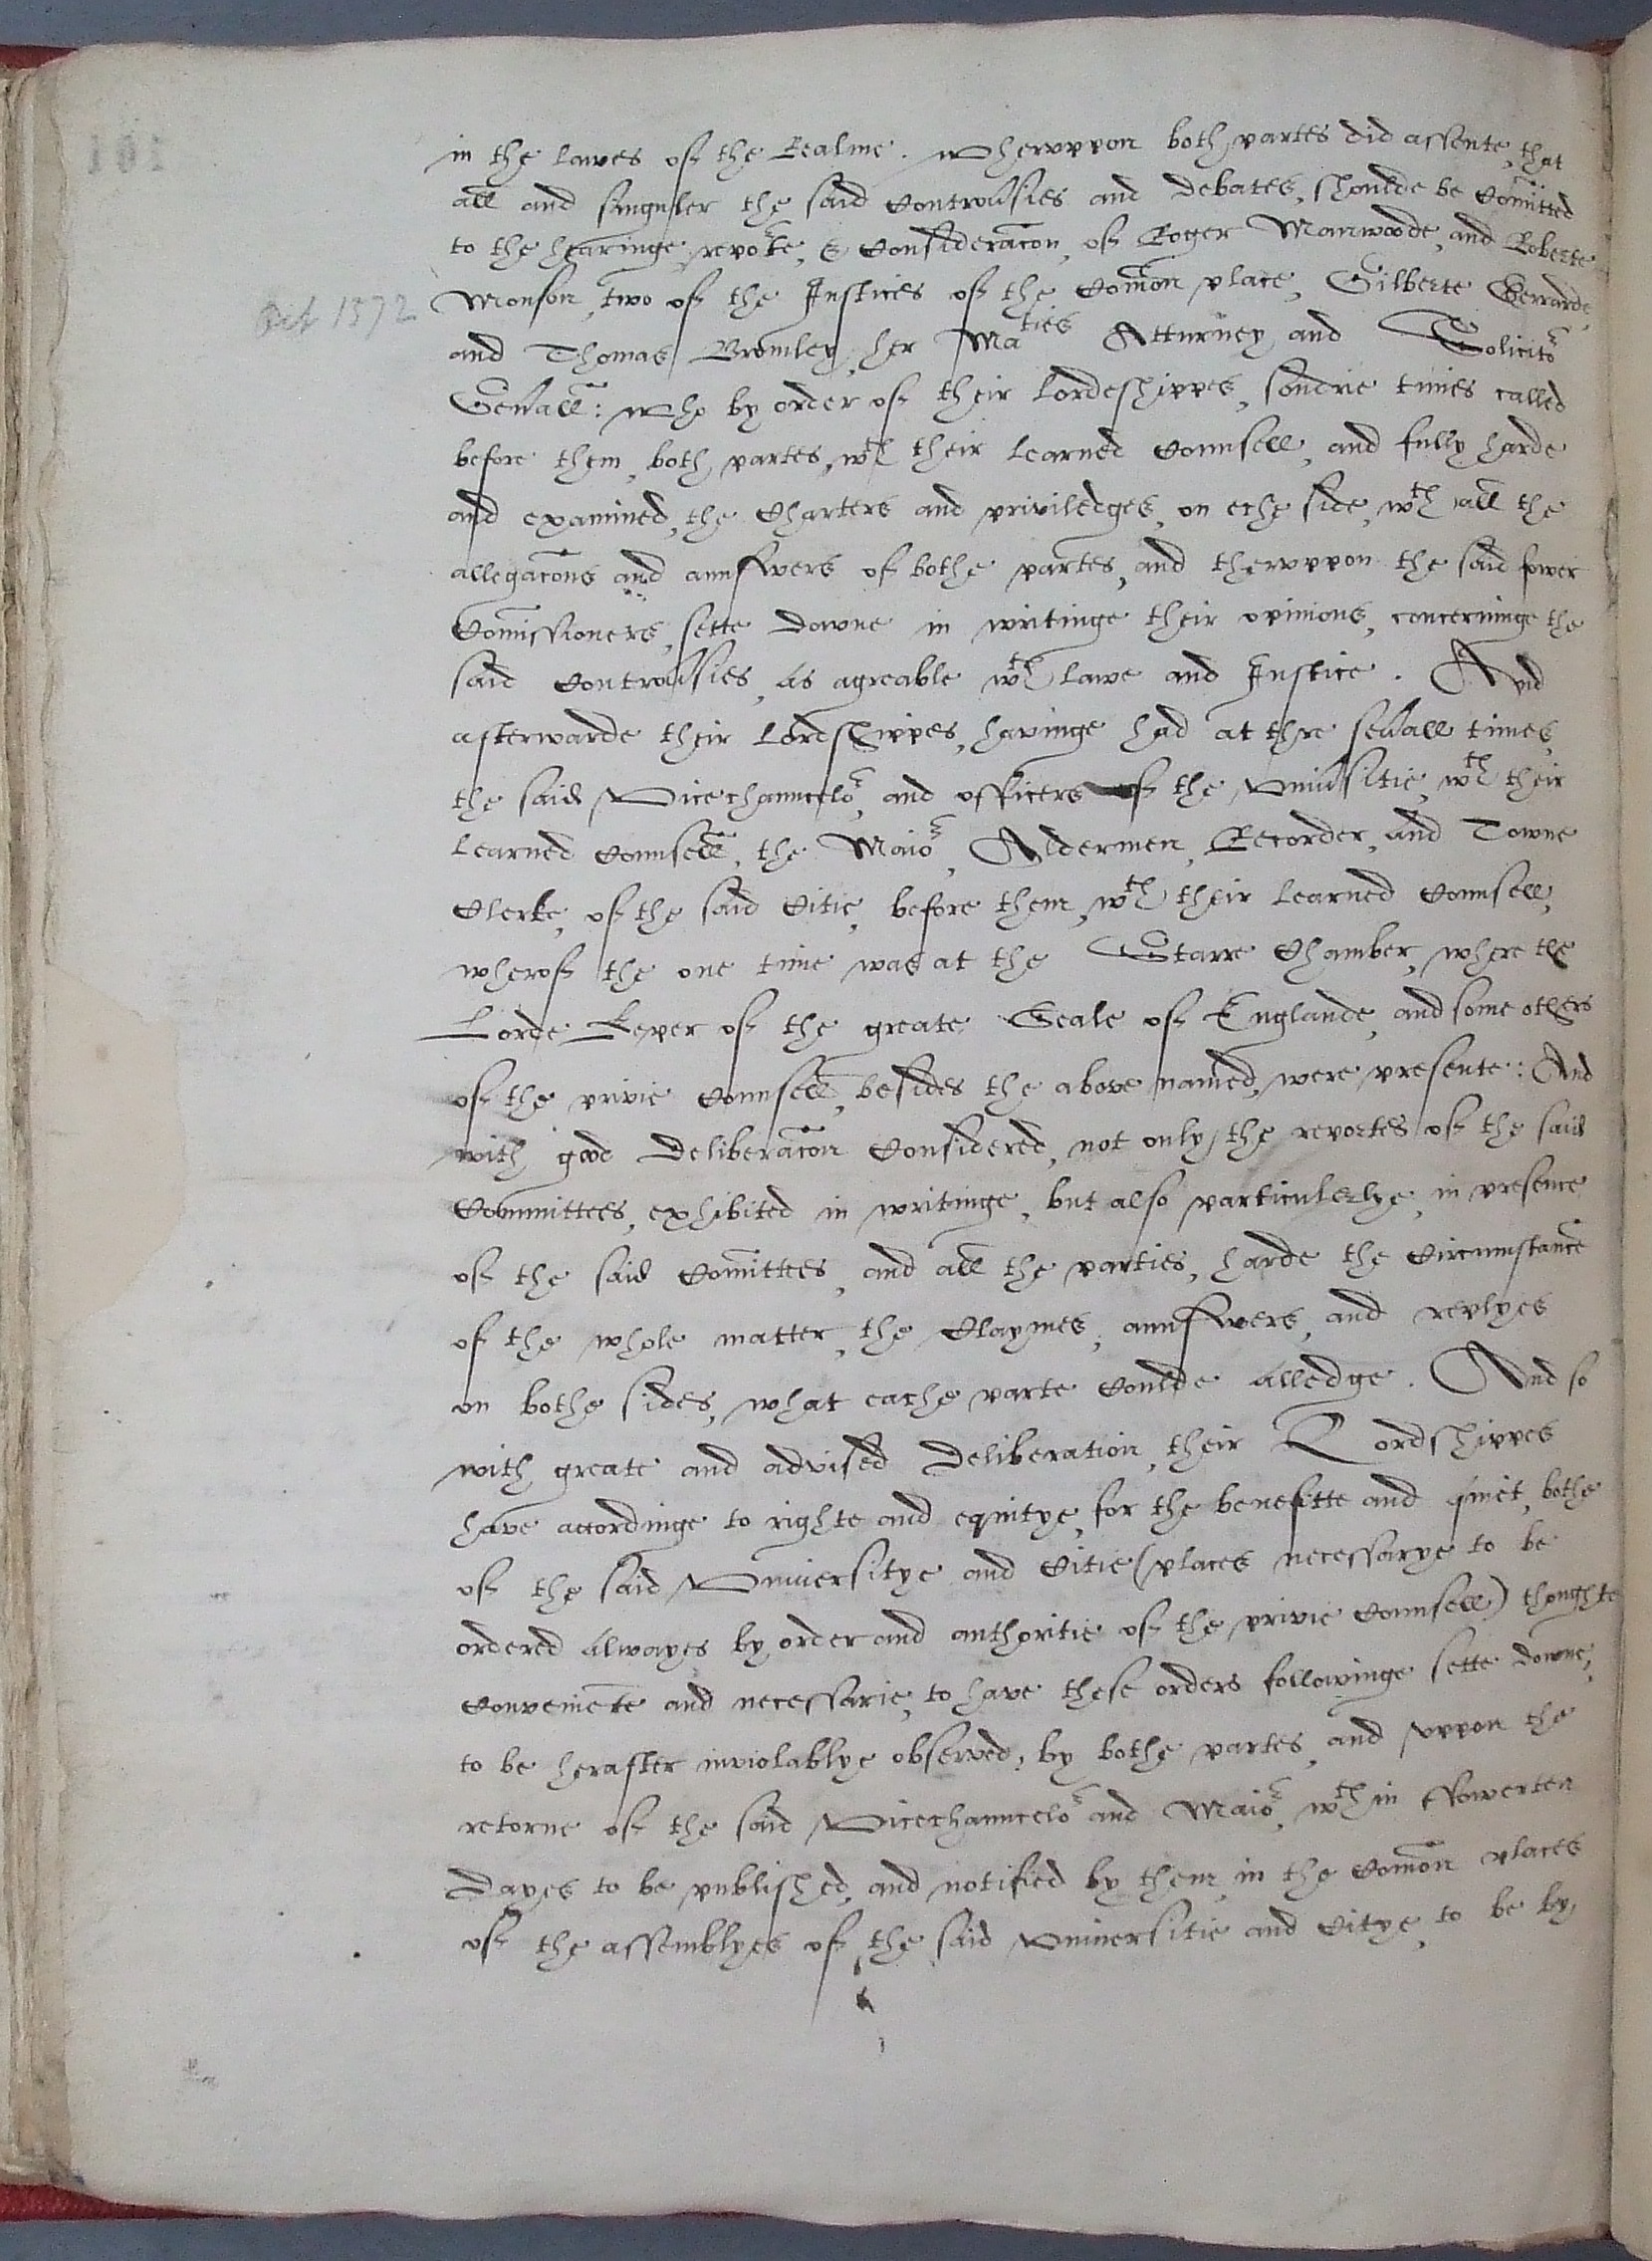 in the lawes of the Realme. Wheruppon both partes did assente, that
all and singuler the said Controu'sies and Debates, shoulde be Com̄itted
to the hearinge, reporte, & Consideracōn, of Roger Manwoode, and Roberte
Oct 1572
Monson, two of the Justices of the Com̄on place, Gilberte Gerrarde,
and Thomas Bromley, her Ma^ties Atturney and Solicito^r
Gen'all: who by order of their Lordeshippes, sondrie times called
before them, both partes, w^th their Learned Counsell, and fully harde
and examined, the Charters and priviledges, on eche side, w^th all the
allegacōns and aunswers of bothe partes, and theruppon the said fower
Com̄issioners, sette downe in writinge their opinions, concerninge the
said Controu'sies, as agreable w^th Lawe and Justice. And
afterwarde their Lordshippes, havinge had at thre seu'all times,
the said Vicechauncelo^r, and officers of the Uniu'sitie, w^th their
Learned Counsell, the Maio^r, Aldermen, Recorder, and Towne
Clerke, of the said Citie, before them, w^th their Learned Counsell,
wherof the one time was at the Starre Chamber, where the
Lorde Keper of the greate Seale of Englande, and some others
of the privie Counsell, besides the above named, were presente: And
with good Deliberacōn Considered, not only the reportes of the said
Committees, exhibited in writinge, but also particulerlye, in presence
of the said Com̄ittees, and all the parties, harde the Circumstance
of the whole matter, the Claymes, aunswers, and replyes
on bothe sides, what eache parte Coulde Alledge. And so
with greate and advised Deliberation, their Lordshippes
have accordinge to righte and equitye, for the benefitte and quiet, bothe
of the said Universitye and Citie (places necessarye to be
ordered Alwayes by order and authoritie of the privie Counsell) thoughte
Conveniente and necessarie, to have these orders followinge sette downe,
to be herafter inviolablye observed, by bothe partes, and uppon the
retorne of the said Vicechauncelo^r and Maio^r, w^thin ffowerten
Dayes to be published, and notified by them, in the Com̄on places
of the assemblyes of the said Universitie and Citye, to be by
101